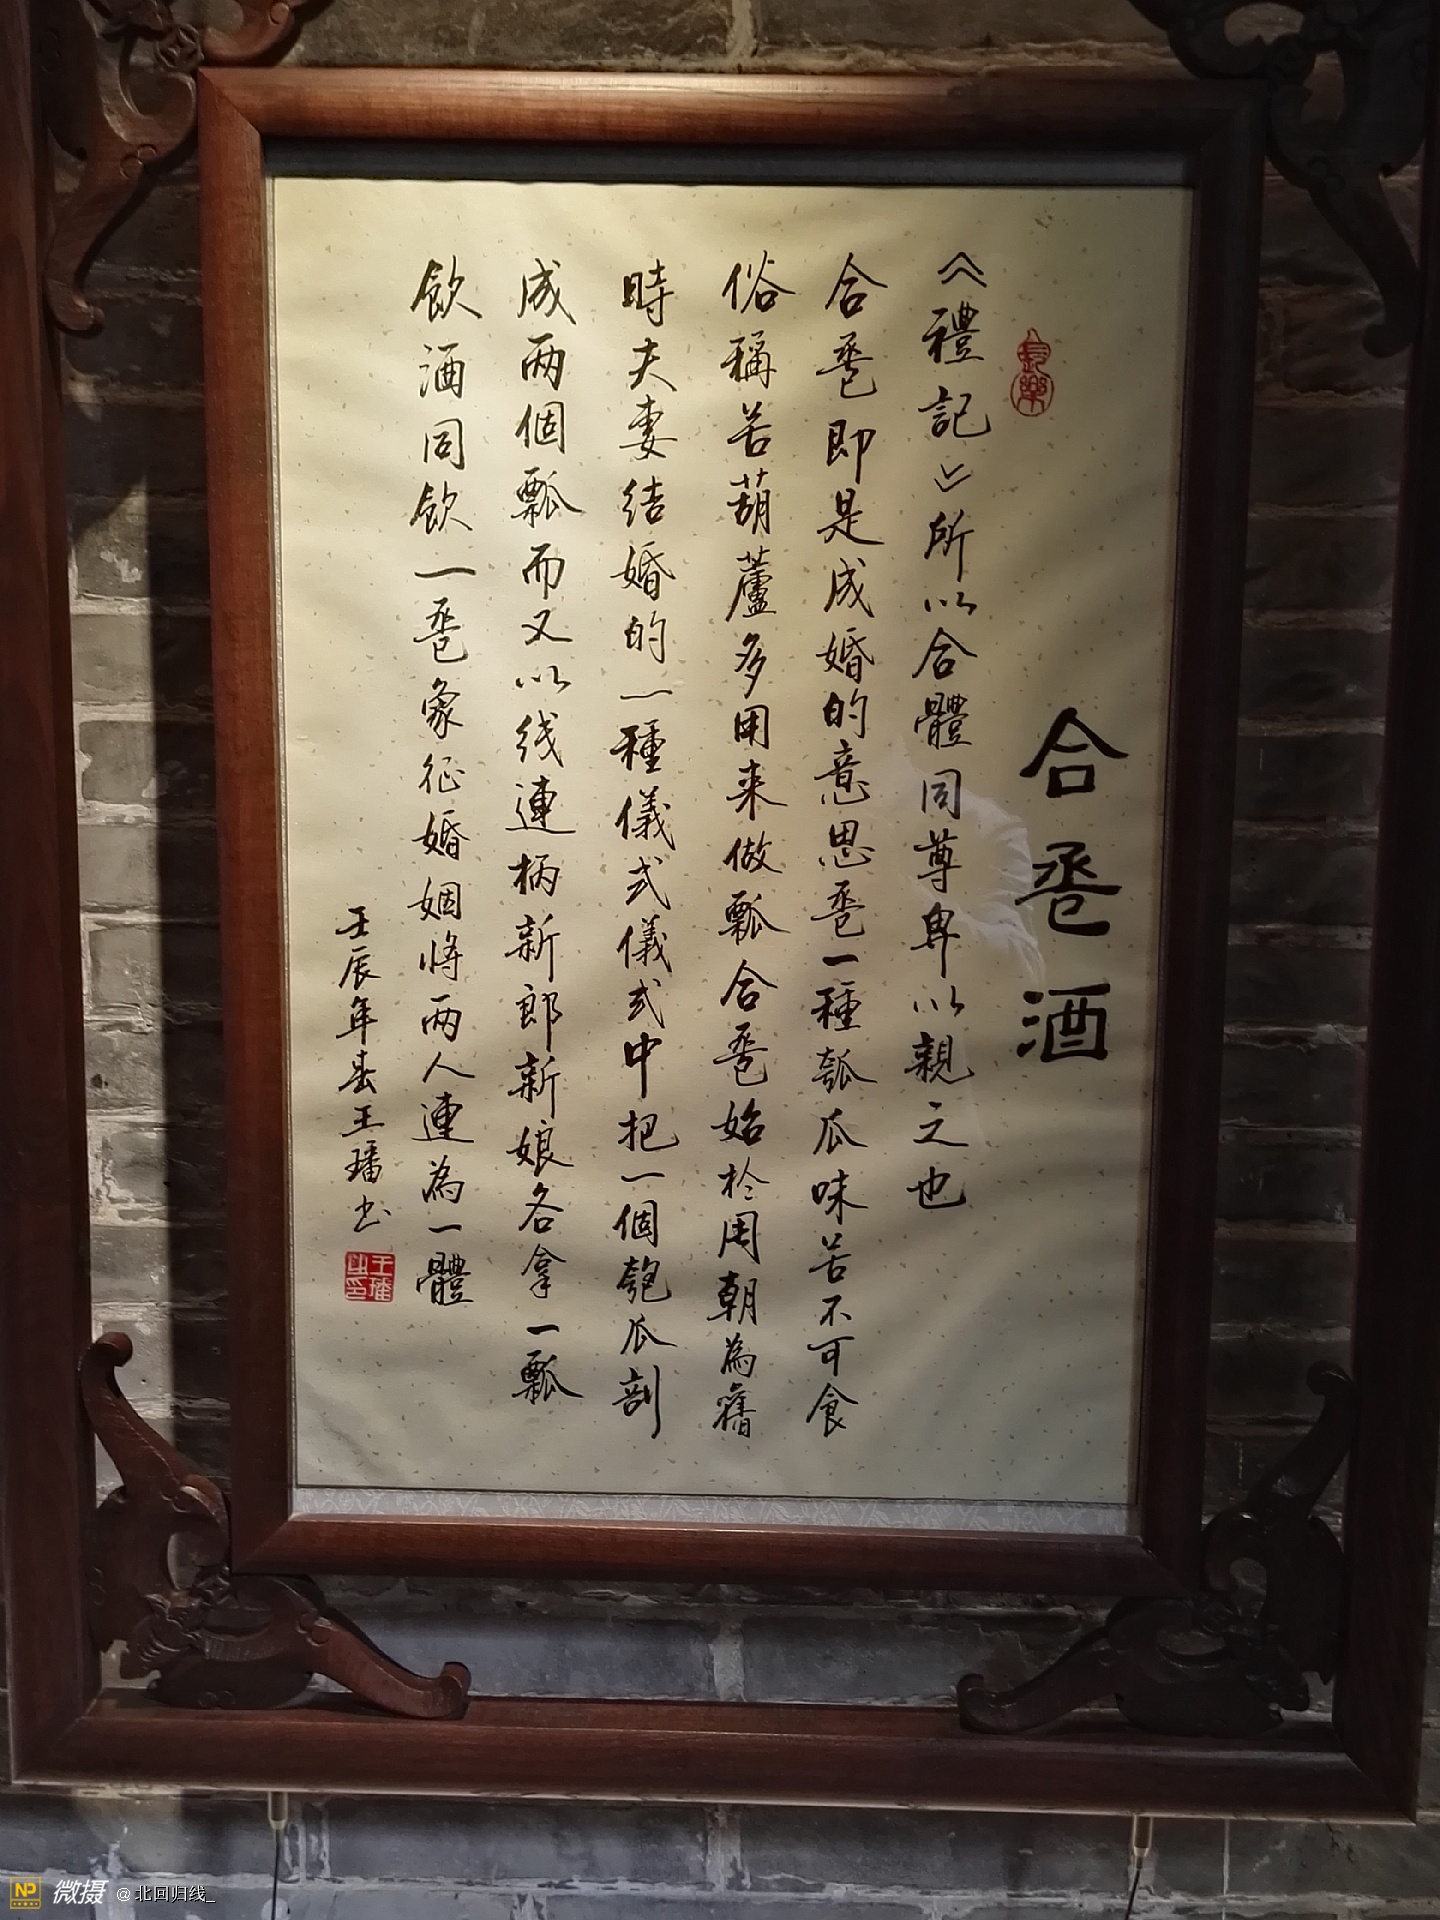 合卺酒
長樂
《禮記》所以合體同尊卑以親之也
合卺即是成婚的意思卺一種瓠瓜味苦不可食
俗稱苦葫蘆多用来做瓢合卺始於周朝為舊
時夫妻结婚的一種儀式儀式中把一個匏瓜剖
成两個瓢而又以线連柄新郎新娘各拿一瓢
飲酒同飲一卺象征婚姻将两人連為一體
壬辰年春王璠书
王璠之印
NP 微摄 @北回归线_